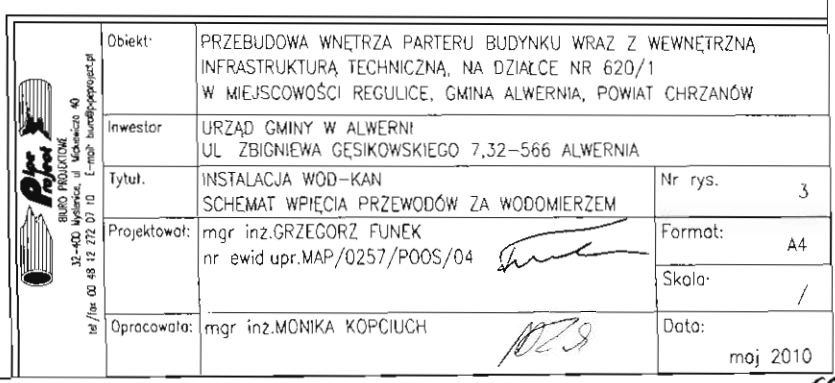 Pipe Project
BIURO PROJEKTOWE
32-400 Myślenice, ul. Mickiewicza 40
tel/fax 00 48 12 272 07 10 E-mail: biuro@pipeproject.pl
Obiekt:
PRZEBUDOWA WNĘTRZA PARTERU BUDYNKU WRAZ Z WEWNĘTRZNĄ
INFRASTRUKTURĄ TECHNICZNĄ, NA DZIAŁCE NR 620/1
W MIEJSCOWOŚCI REGULICE, GMINA ALWERNIA, POWIAT CHRZANÓW
Inwestor
URZĄD GMINY W ALWERNI
UL ZBIGNIEWA GĘSIKOWSKIEGO 7,32-566 ALWERNIA
Tytuł.
INSTALACJA WOD-KAN
SCHEMAT WPIĘCIA PRZEWODÓW ZA WODOMIERZEM
Nr rys. 3
Projektował: mgr inż.GRZEGORZ FUNEK
nr ewid upr.MAP/0257/POOS/04
Format: A4
Skala: /
Opracowała: mgr inż.MONIKA KOPCIUCH
Data:
maj 2010